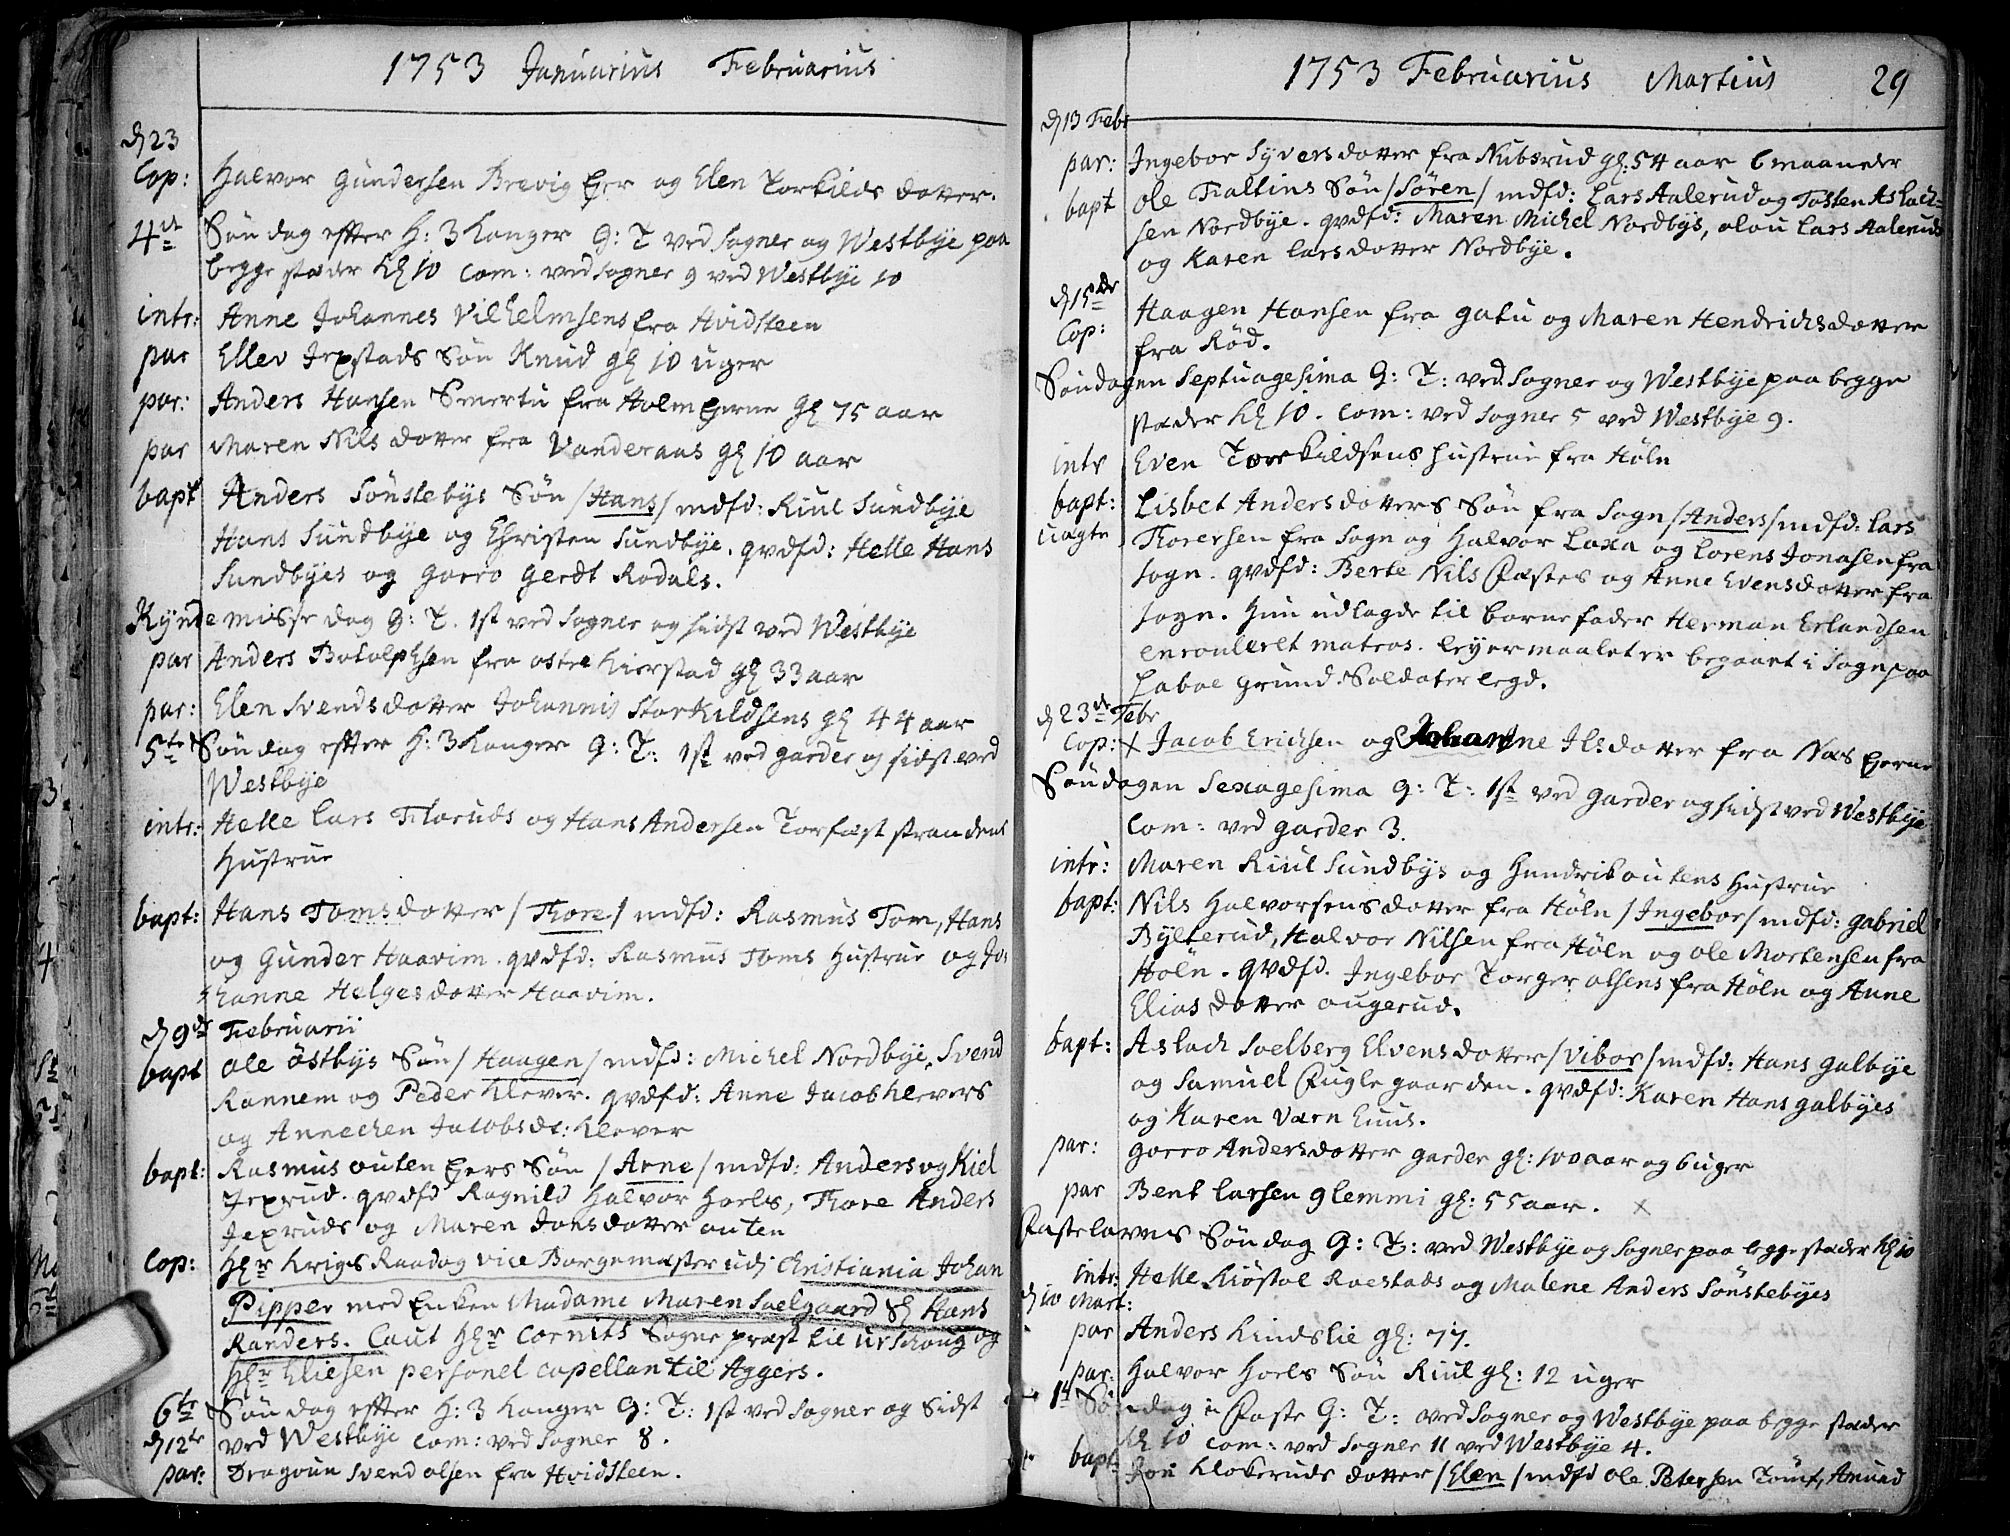 1753 Januarius Februarius
d 23
Cop: Halvor Gundersen Brevig Eyer og Elen Torkilds dotter.
4de Søndag efter H: 3 Konger G: T ved Sogner og Westbye paa
begge stæder Kl 10 Com: ved Sogner 9 ved Westbye 10
intr: Anne Johannes Vilhelmsens fra Hvidsteen
par Ellev Jexstads Søn Knud gl 10 uger
par: Anders Hansen Smertu fra Holm Eyerne gl 75 aar
par Maren Nils dotter fra Vanderaas gl 10 aar
bapt Anders Sønstebys Søn /Hans/ mdfd: Riul Sundbye
Hans Sundbye og Christen Sundbye. qvdfd: Helle Hans
Sundbyes og Gorro Gerdt Rodals.
Kyndemisse dag G: T. 1st ved Sogner og sidst ved Westbye
par Anders Botolphsen fra østre Kierstad gl 33 aar
par: Elen Svends dotter Johannis Storkildsens gl 44 aar
5te Søndag efter H: 3 Konger G: T: 1st ved Garder og sidst ved
Westbye
intr: Helle Lars Floruds og Hans Andersen Torfæst strandens
Hustrue
bapt: Hans Toms dotter /Thore/ mdfd: Rasmus Tom, Hans
og Gunder Haavim. qvdfd: Rasmus Toms Hustrue og Jo:
hanne Helgesdotter Haavim.
d 9de Februarii
bapt Ole østbys Søn /Haagen/ mdfd: Michel Nordbye, Svend
Rannem og Peder Klever. qvdfd: Anne Jacob Klevers
og Annechen Jacobsdr: Klever
bapt: Rasmus outen Eyers Søn /Arne/ mdfd: Anders og Kiel
Jexrud. qvdfd Ragnild Halvor Hoels, Thore Anders
Jexruds og Maren Jonsdotter outen
Cop: Hr Krigs Raad og vice Borgemæster udi Christiania Johan
Pipper med Enken Madame Maren Soelgaard Sl Hans
Randers. Caut Hr Cornits Sogne præst til Urschoug og
Hr Eliesen personel Capellan til Aggers.
6te Søndag efter H: 3 Konger G: T: 1st ved Sogner og Sidst
d 12te ved Westbye Com: ved Sogner 8.
par: Dragoun Svend Olsen fra Hvidsteen.
1753 Februarius Martius 29
d 13 Febr
par: Ingebor Syversdotter fra Nubsrud gl: 54 aar 6 maaneder
bapt Ole Faltins Søn /Søren/ mdfd: Lars Aalerud og Tosten Aslach=
sen Nordbye. qvdfd: Maren Michel Nordbys, Olou Lars Aaleruds
og Karen Larsdotter Nordbye.
d 15de
Cop: Haagen Hansen fra Gatu og Maren Hendrichsdotter
fra Rød.
Søndagen Septuagesima G: T: ved Sogner og Westbye paa begge
stæder Kl 10. Com: ved Sogner 5 ved Westbye 9.
intr Even Torkildsens Hustrue fra Høln
bapt: Lisbet Andersdotters Søn fra Sogn /Anders/ mdfd: Lars
uægte Thoresen fra Sogn og Halvor Laxa og Lorens Jonasen fra
Sogn. qvdfd: Berte Nils Fastes og Anne Evensdotter fra
Sogn. Hun udlagde til barnefader Herman Erlandsen
enrouleret matros. Leyermaalet er begaaet i Sogn paa
Laboe grund. Soldater legd.
d 23de Febr
Cop: x Jacob Erichsen og Johanne Ilsdotter fra Næs Eyerne
Søndagen Sexagesima G: T: 1st ved Garder og sidst ved Westbye
Com: ved Garder 3.
intr: Maren Riul Sundbys og Hendrik outens Hustrue
bapt: Nils Halvorsens dotter fra Høln /Ingebor/ mdfd: Gabriel
Bylterud, Halvor Nilsen fra Høln og Ole Mortensen fra
Høln. qvdfd. Ingebor Torger Olsens fra Høln og Anne
Eliasdotter ougerud.
bapt: Aslach Soelberg Elvens dotter /Vibor/ mdfd: Hans Galbye
og Samuel Fuglegaarden. qvdfd: Karen Hans Galbyes
og Karen Værn Huus.
par: Gorro Andersdotter Garder gl: 100 aar og 6 uger
par Bent Larsen Glemmi gl: 55 aar. x
Fastelavns Søndag G: T: ved Westbye og Sogner paa begge stæder Kl 10
intr: Helle Kiøstol Roestads og Malene Anders Sønstebyes
d 10 Mart:
par Anders Lindslie gl: 77.
par. Halvor Hoels Søn Riul gl: 12 uger
1st Søndag i Faste G: T: ved Sogner og Westbye paa begge stæder
Kl 10 Com: ved Sogner 11 ved Westbye 4.
bapt Jon Klokeruds dotter /Elen/ mdfd Ole Petersen Tømt, Amund